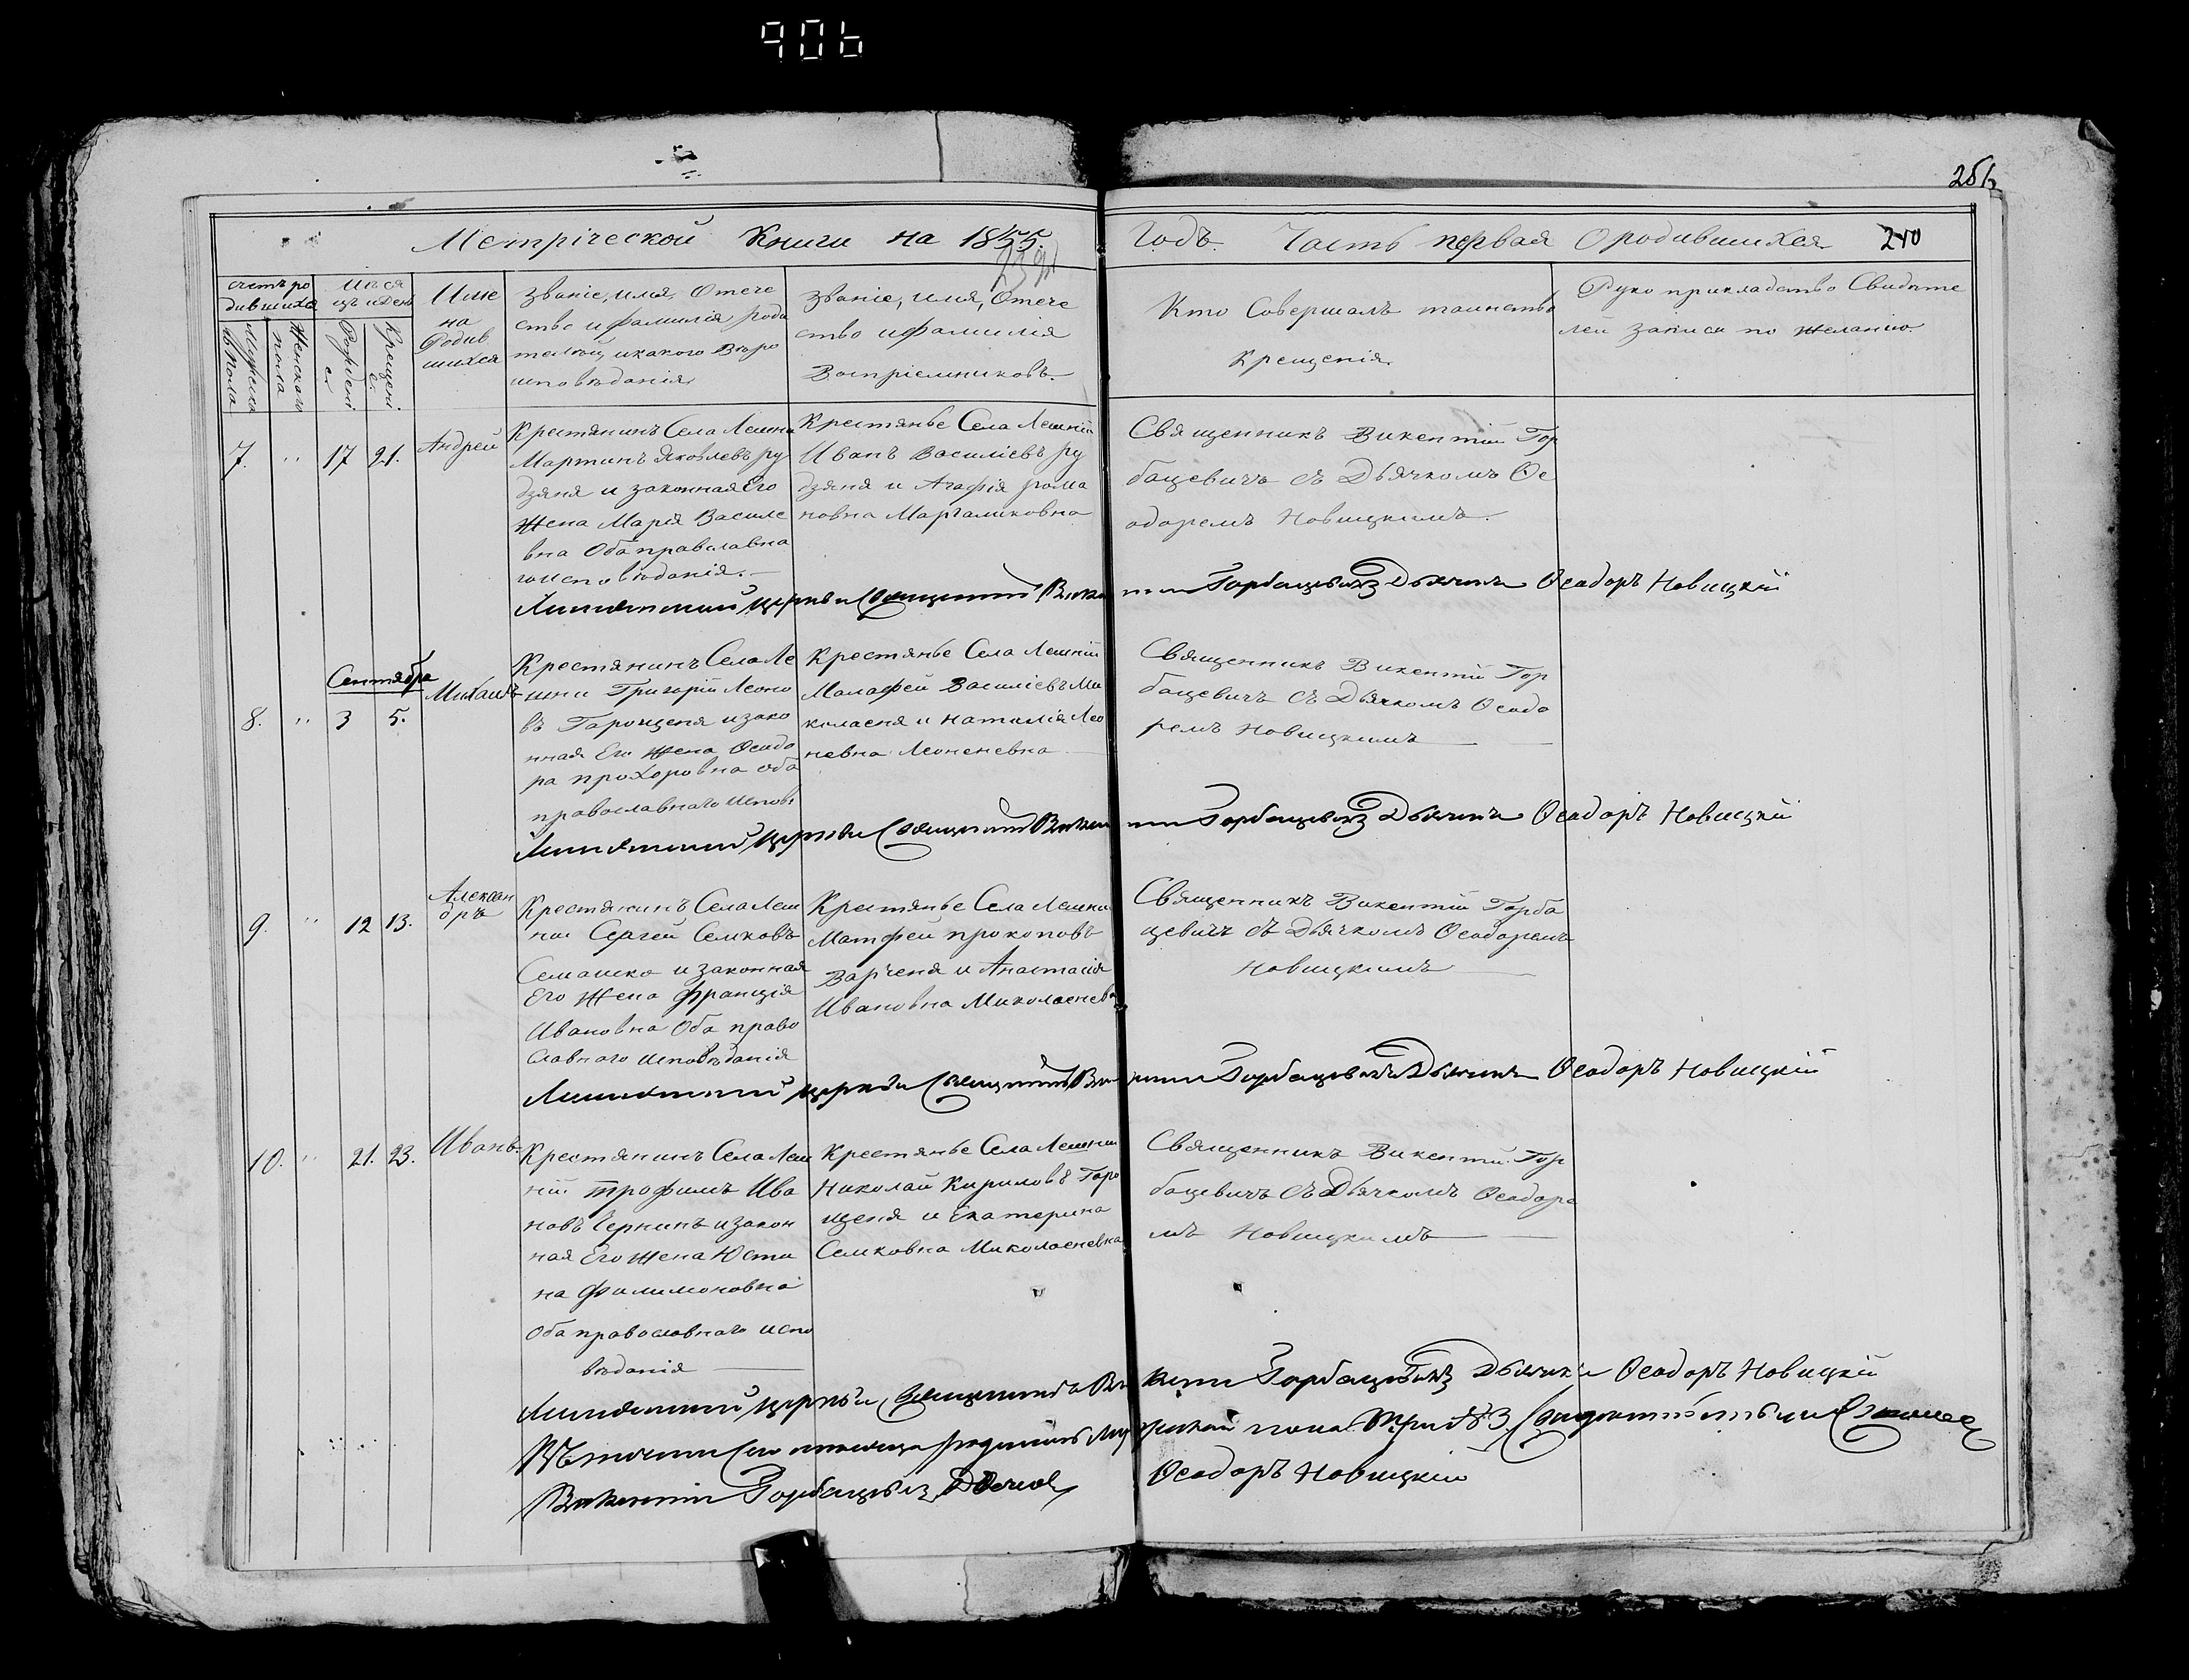 906
251
Метрической Книги на 1855.
Годъ. Часть первая О родившихся 240
счетъ ро
дившихся
Мужеска
го пола
Женскаго
пола
Мѣся
цъ и День
Рождені
я
Крещені
я
Име
на
Родив
шихся
Званіе, имя, Отече
ство и фамилія роди
телей, и какого Вѣро
исповѣданія
Званіе, имя, Отече
ство и фамилія
Воспріемниковъ.
Кто Совершалъ таинство
Крещенія.
Руко прикладство Свидѣте
лей записи по желанію.
7. " 17 21. Андрей
Крестянинъ Села Лешни
Мартинъ Яковлевъ ру
дзяня и законная Его
Жена Марія Василе
вна Оба православна
го исповѣданія.
Крестянѣ Села Лешній
Иванъ Василіевъ ру
дзяня и Агафія рома
новна Маргаликовна
Священникъ Викентій Гор
бацевичъ съ Дьячкомъ Ѳе
одоремъ Новицкимъ.
церкви Священникъ Викентій Горбацевичъ Дьячикъ Ѳеодоръ Новицкій
Сентября
8. " 3 5. Михаилъ
Крестянинъ Села Ле
шни Григорій Леоно
въ Гарощеня и зако
нная Его Жена Ѳеодо
ра прохоровна оба
православнаго испов:
Крестянѣ Села Лешній
Малафей Василіевъ Ми
колаеня и Наталія Лео
невна Леоненевна
Священникъ Викентій Гор
бацевичъ съ Дьячкомъ Ѳеодо
ремъ Новицкимъ
церкви Священникъ Викентій Горбацевичъ Дьячикъ Ѳеодоръ Новицкій
9. " 12 13. Алексан
дръ
Крестянинъ Села Леш
ни Сергей Семковъ
Семашко и законная
Его Жена Франція
Ивановна Оба право
славнаго исповѣданія
Крестянѣ Села Лешни
Матфей прокоповъ
Варченя и Анастасія
Ивановна Миколаеневна
Священникъ Викентій Горба
цевичъ съ Дьячкомъ Ѳеодоремъ
Новицкимъ
церкви Священникъ Викентій Горбацевичъ Дьячикъ Ѳеодоръ Новицкій
10. " 21. 23. Иванъ.
Крестянинъ Села Леш
ній Трофимъ Ива
новъ Чернинъ и закон
ная Его Жена Юсти
на Филимоновна
Оба православнаго испо
вѣданія
Крестянѣ Села Лешни
Николай Кириловъ Гаро
щеня и Екатерина
Семковна Миколаеневна
Священникъ Викентій Гор
бацевичъ съ Дьячкомъ Ѳеодоре
мъ Новицкимъ
церкви Священникъ Викентій Горбацевичъ Дьячикъ Ѳеодоръ Новицкій
Викентій Горбацевичъ Дьячокъ Ѳеодоръ Новицкій